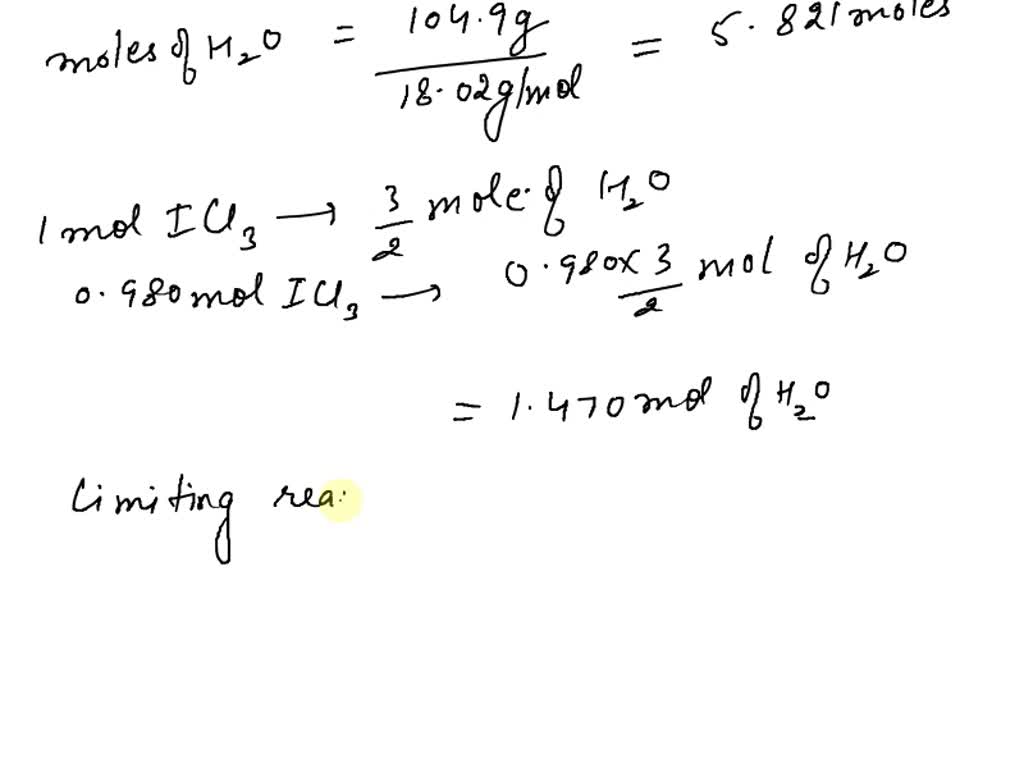 moles of H₂O = 104.9g / 18.02g/mol = 5.821 moles
1 mol ICl₃ → 3/2 mole of H₂O
0.980 mol ICl₃ → 0.980 × 3/2 mol of H₂O
= 1.470 mol of H₂O
Limiting rea